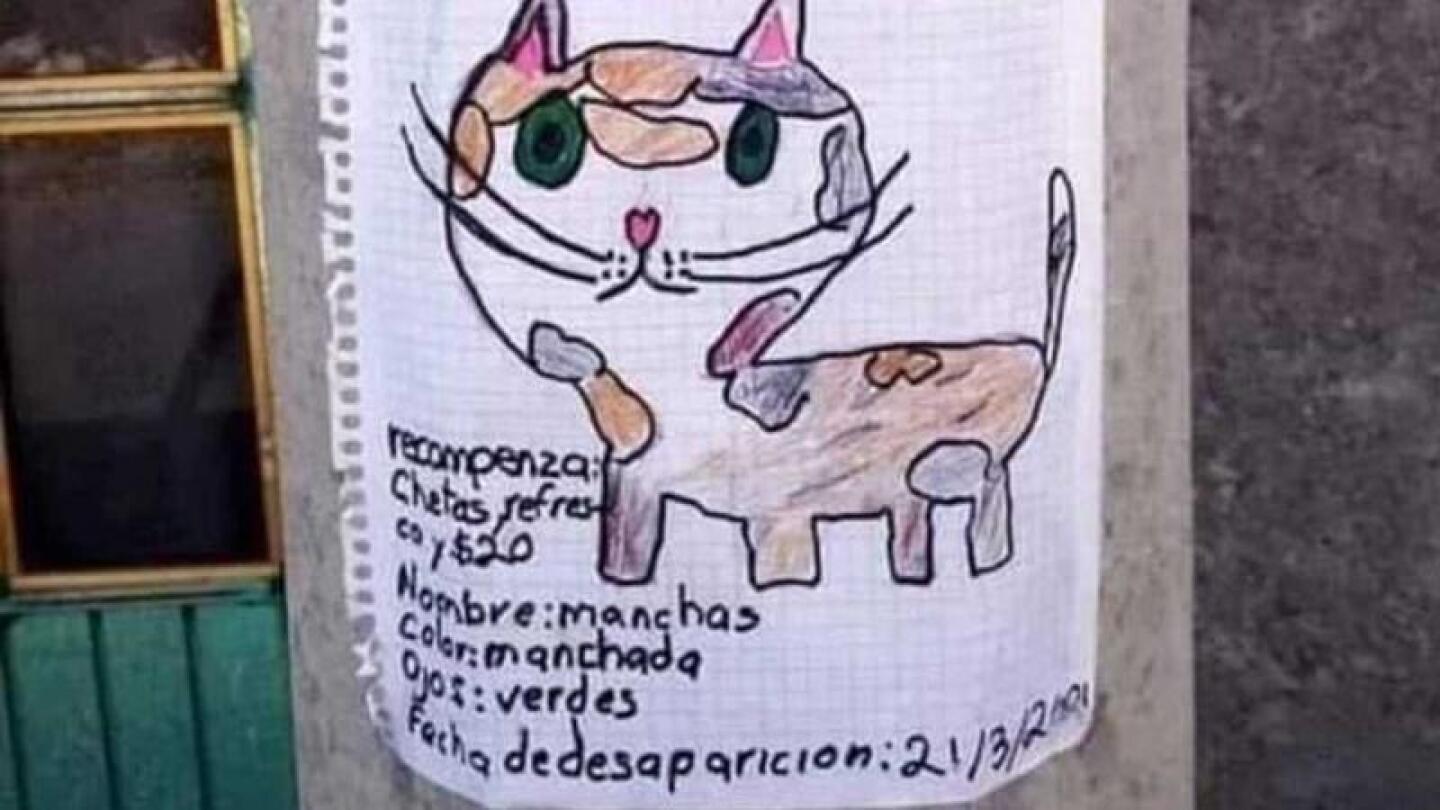 recompenza:
Chetas, refres-
co y $20
Nombre: manchas
Color: manchada
Ojos: verdes
Facha de desaparicion: 21/3/2021